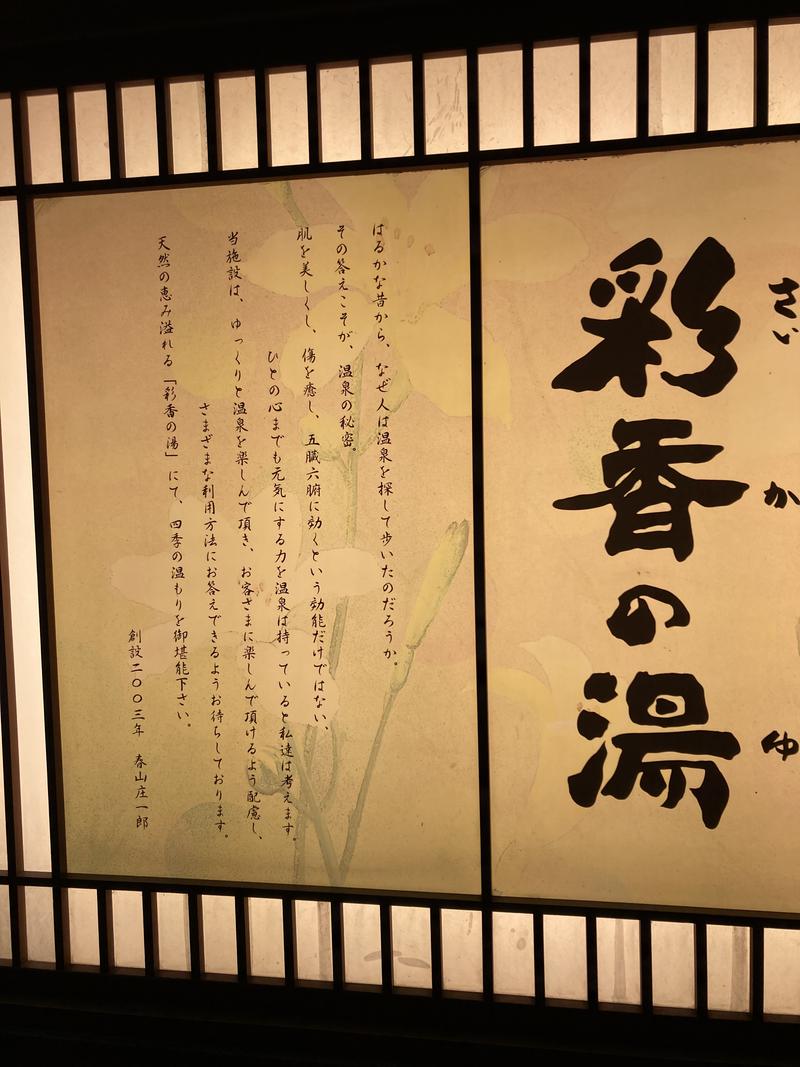 彩香の湯
さい
か
ゆ
はるかな昔から、なぜ人は温泉を探して歩いたのだろうか。
その答えこそが、温泉の秘密。
肌を美しくし、傷を癒し、五臓六腑に効くという効能だけではない、
ひとの心までも元気にする力を温泉は持っていると私達は考えます。
当施設は、ゆっくりと温泉を楽しんで頂き、お客さまに楽しんで頂けるよう配慮し、
さまざまな利用方法にお答えできるようお待ちしております。
天然の恵み溢れる「彩香の湯」にて、四季の温もりを御堪能下さい。
創設二〇〇三年 春山庄一郎